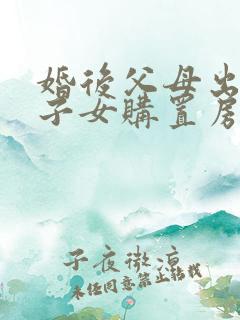 婚後父母出
子女購置房
子夜微涼
未经同意禁止转载